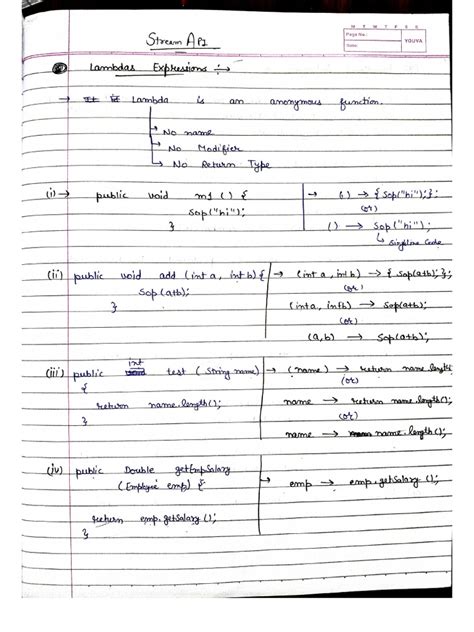 Stream API
M T W T F S S
Page No.:
Date:
YOUVA
Lambdas Expressions :→
→ Lambda is an anonymous function.
→ No name
→ No Modifier
→ No Return Type
(i) → public void m1 () {
Sop("hi");
}
→ () → { Sop("hi"); };
(or)
() → Sop("hi");
↳ Singline Code
(ii) public void add (int a, int b) {
Sop(a+b);
}
→ (int a, int b) → { Sop(a+b); };
(or)
(int a, int b) → Sop(a+b);
(or)
(a, b) → Sop(a+b);
(iii) public int test (String name)
{
return name.length();
}
→ (name) → return name.length();
(or)
name → return name.length();
(or)
name → name.length();
(iv) public Double getEmpSalary
(Employee emp) {
return emp.getSalary();
}
→ emp → emp.getSalary();